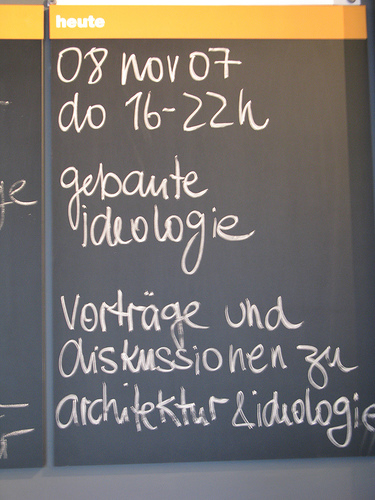 heute
08 nov 07
do 16-22h
gebaute
ideologie
vorträge und
diskussionen zu
architektur & ideologie